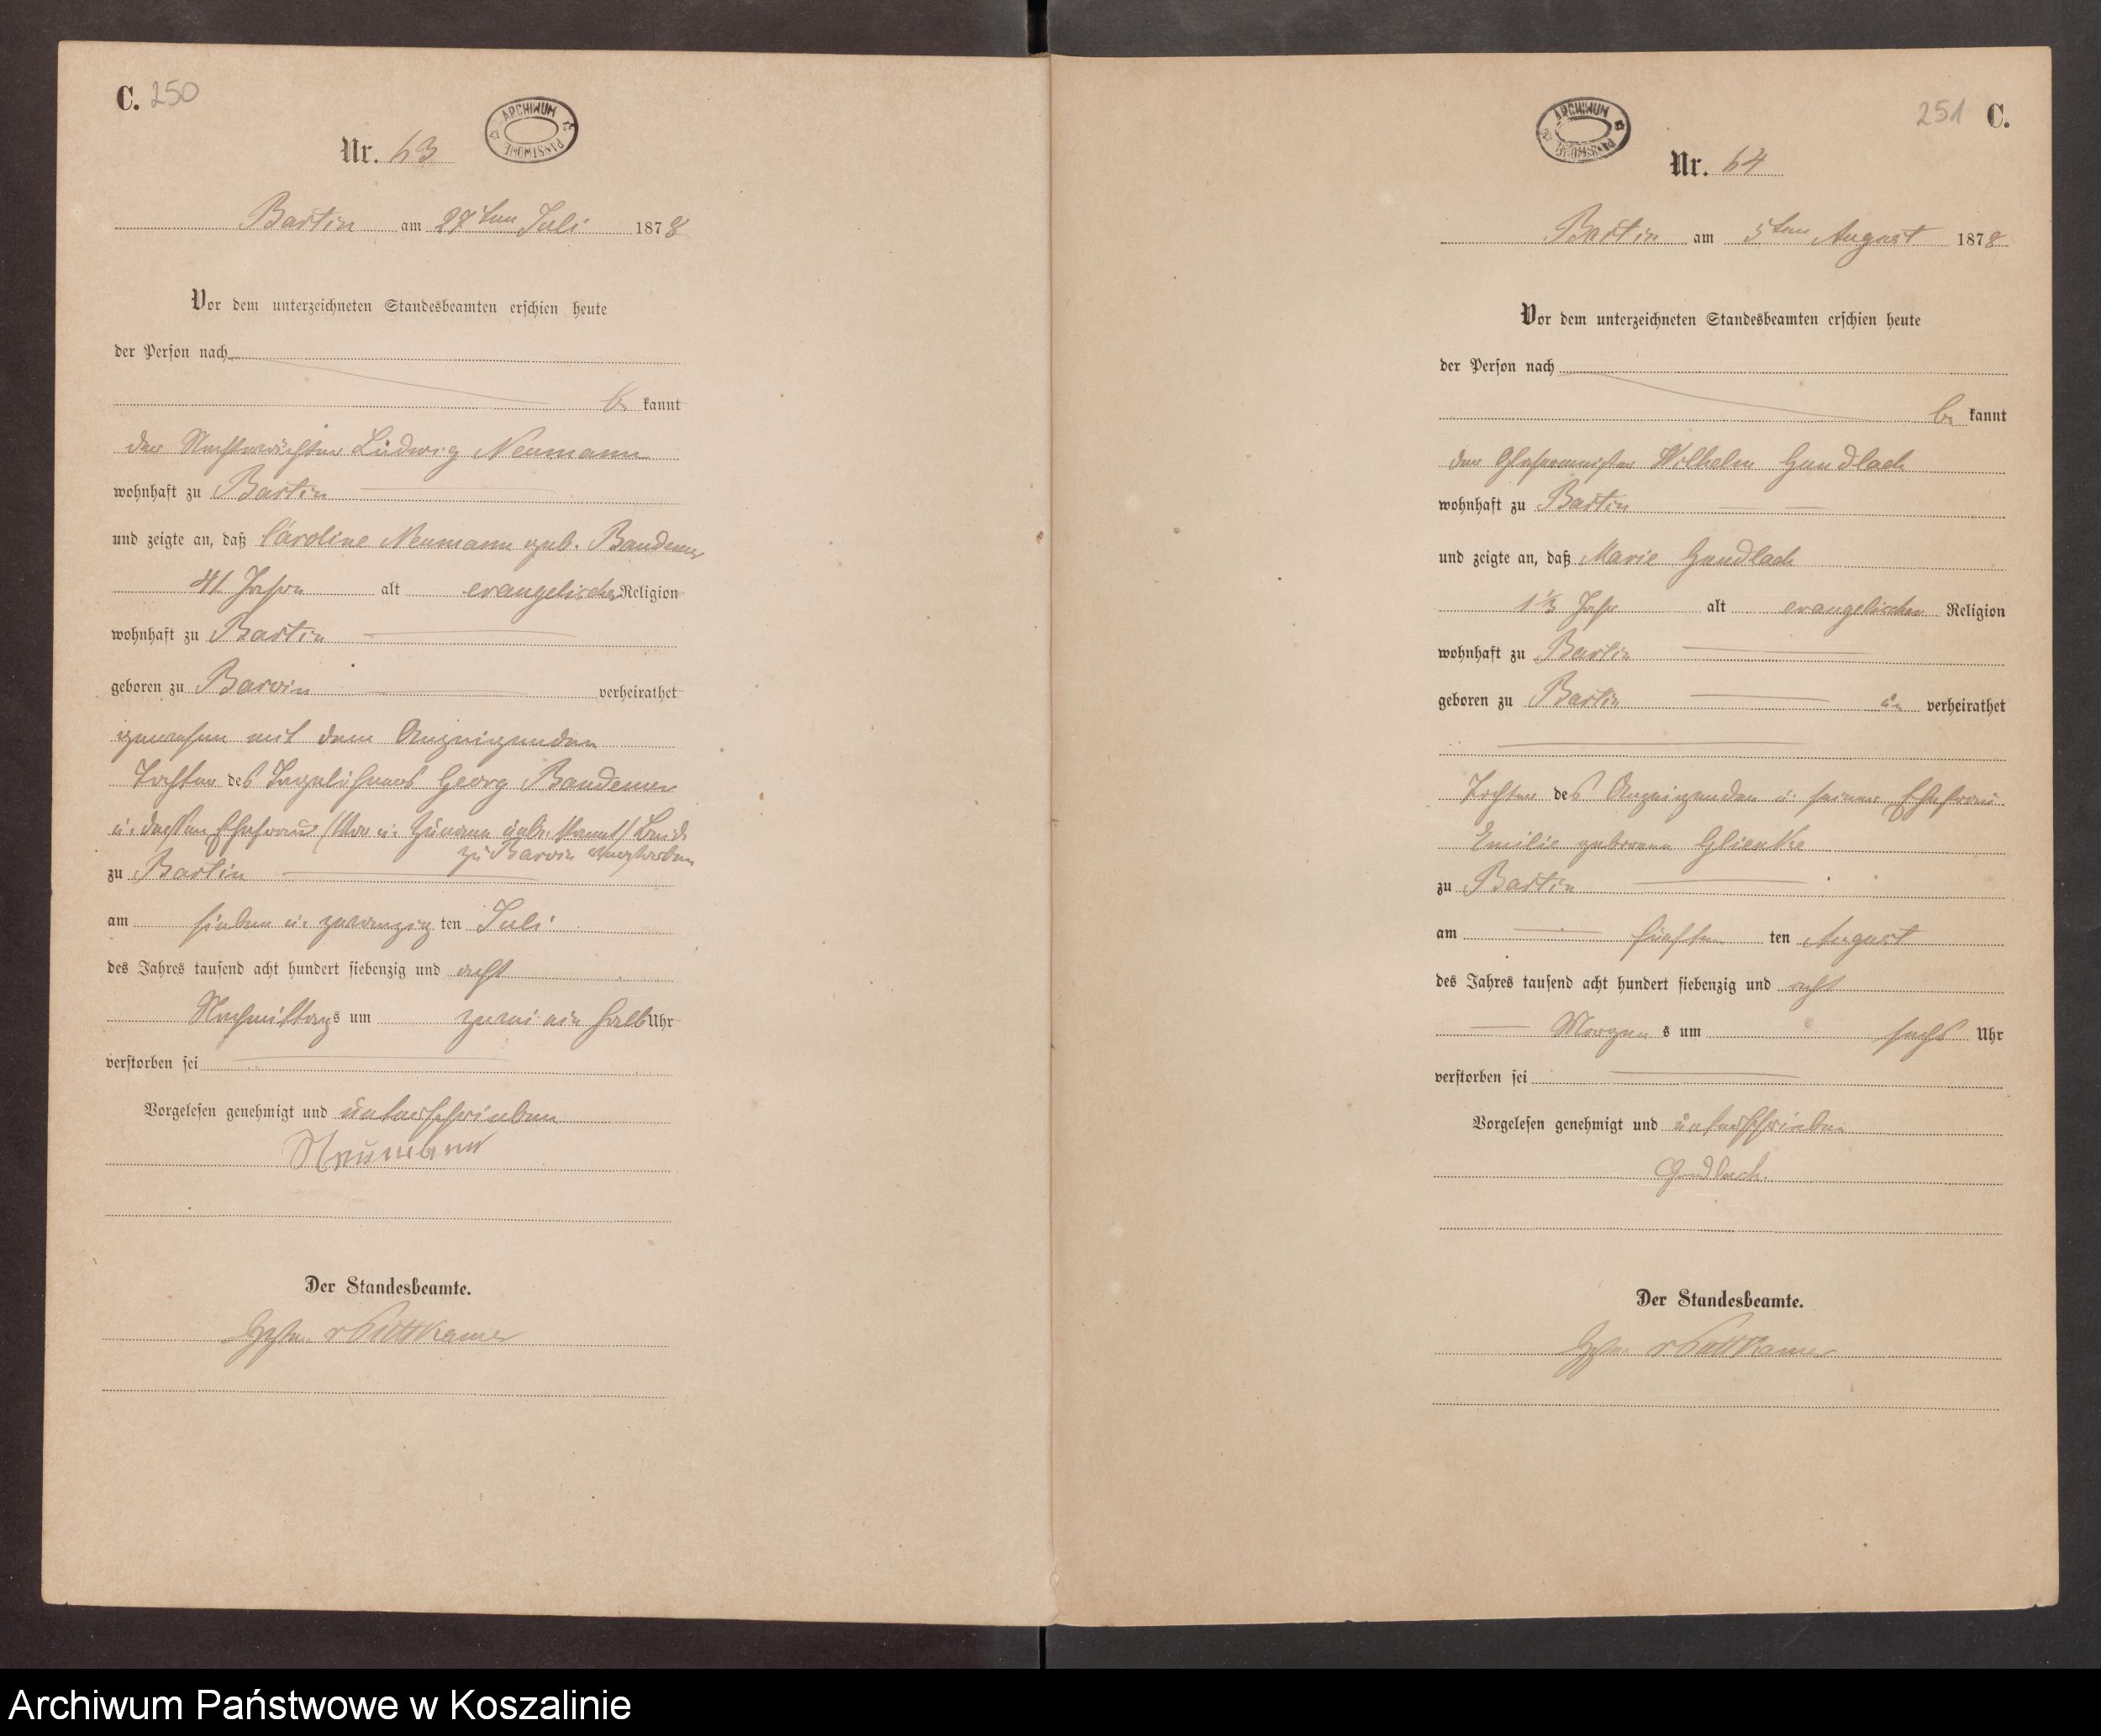 C. 250
ARCHIWUM PAŃSTWOWE
Nr. 63
Bartin am 27ten Juli 1878
Vor dem unterzeichneten Standesbeamten erschien heute
der Person nach
be kannt
der Nachtwächter Ludwig Neumann
wohnhaft zu Bartin
und zeigte an, daß Caroline Neumann geb. Bandemer
41 Jahre alt evangelischer Religion
wohnhaft zu Bartin
geboren zu Barvin verheirathet
gewesen mit dem Anzeigenden
Tochter des Tagelöhners Georg Bandemer
u. dessen Ehefrau (Vor u. Zuname unbekannt) Beide
zu Barvin verstorben
zu Bartin
am sieben u. zwanzig ten Juli
des Jahres tausend acht hundert siebenzig und acht
Nachmittags um zwei ein halb Uhr
verstorben sei
Vorgelesen genehmigt und unterschrieben
Neumann
Der Standesbeamte.
v Puttkamer
251 C.
ARCHIWUM PAŃSTWOWE
Nr. 64
Bartin am 5ten August 1878
Vor dem unterzeichneten Standesbeamten erschien heute
der Person nach
be kannt
der Wilhelm Gundlach
wohnhaft zu Bartin
und zeigte an, daß Marie Gundlach
1 1/3 Jahr alt evangelischer Religion
wohnhaft zu Bartin
geboren zu Bartin un verheirathet
Tochter des Anzeigenden u. seiner Ehefrau
Emilie geborene Glienke
zu Bartin
am fünften ten August
des Jahres tausend acht hundert siebenzig und acht
Morgen s um sechs Uhr
verstorben sei
Vorgelesen genehmigt und unterschrieben
Gundlach.
Der Standesbeamte.
v Puttkamer
Archiwum Państwowe w Koszalinie